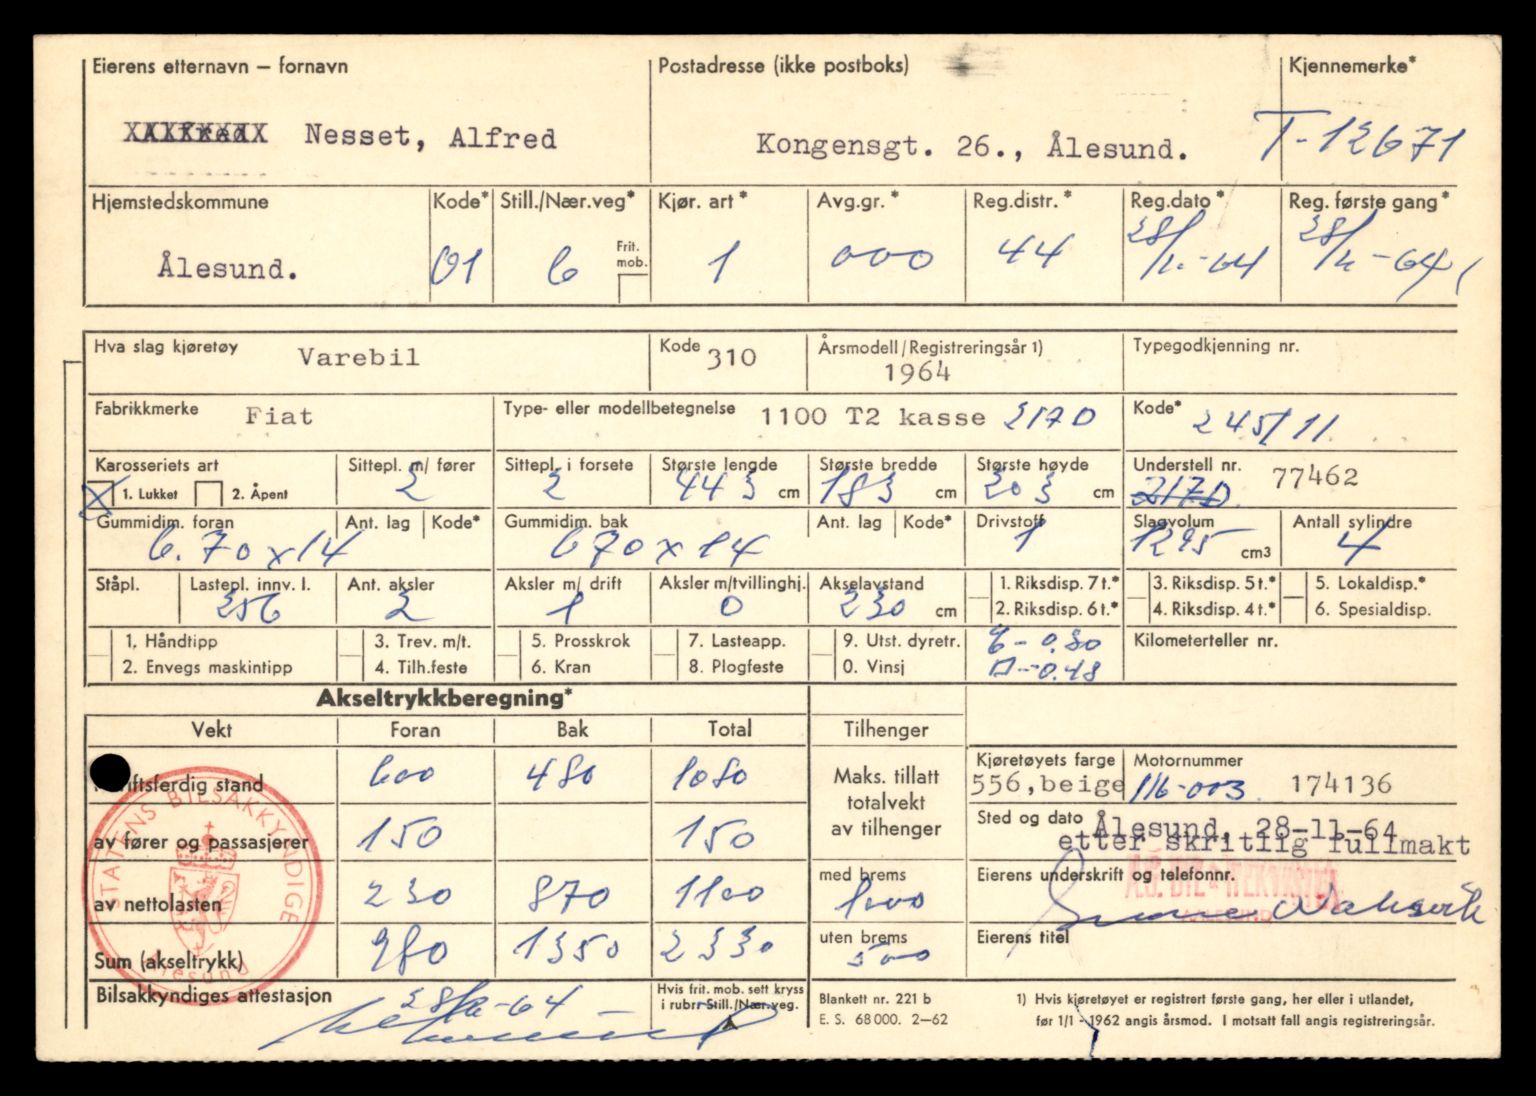 Eierens etternavn – fornavn Postadresse (ikke postboks) Kjennemerke*
Nesset, Alfred Kongensgt. 26., Ålesund. T-12671
Hjemstedskommune Kode* Still./Nær.veg* Kjør. art* Avg.gr.* Reg.distr.* Reg.dato* Reg. første gang*
Frit. mob.
Ålesund. 01 6 1 000 44 28/11-64 28/11-64
Hva slag kjøretøy Varebil Kode 310 Årsmodell/Registreringsår 1) 1964 Typegodkjenning nr.
Fabrikkmerke Fiat Type- eller modellbetegnelse 1100 T2 kasse 217D Kode* 245/11
Karosseriets art Sittepl. m/ fører Sittepl. i forsete Største lengde Største bredde Største høyde Understell nr. 77462
X 1. Lukket 2. Åpent 2 2 443 cm 183 cm 203 cm 217D.
Gummidim. foran Ant. lag Kode* Gummidim. bak Ant. lag Kode* Drivstoff Slagvolum Antall sylindre
6.70x14 670x14 1 1295 cm3 4
Ståpl. Lastepl. innv. l. Ant. aksler Aksler m/ drift Aksler m/tvillinghj. Akselavstand 1. Riksdisp. 7 t.* 3. Riksdisp. 5 t.* 5. Lokaldisp.*
256 2 1 0 230 cm 2. Riksdisp. 6 t.* 4. Riksdisp. 4 t.* 6. Spesialdisp.
1. Håndtipp 3. Trev. m/t. 5. Prosskrok 7. Lasteapp. 9. Utst. dyretr. 0.80 Kilometerteller nr.
2. Envegs maskintipp 4. Tilh.feste 6. Kran 8. Plogfeste 0. Vinsj 0.48
Akseltrykkberegning*
Vekt Foran Bak Total Tilhenger
Kjøretøyets farge Motornummer
stand 600 480 1080 Maks. tillatt totalvekt av tilhenger 556,beige 116-003. 174136
Sted og dato Ålesund, 28-11-64
av fører og passasjerer 150 150 etter skritlig fullmakt
med brems Eierens underskrift og telefonnr.
av nettolasten 230 870 1100 1000
uten brems Eierens titel
Sum (akseltrykk) 980 1350 2330 500
Bilsakkyndiges attestasjon 28/11-64
Hvis frit. mob. sett kryss
i rubr. Still./Nær.veg.
Blankett nr. 221 b
E. S. 68 000. 2–62
1) Hvis kjøretøyet er registrert første gang, her eller i utlandet,
før 1/1 - 1962 angis årsmod. I motsatt fall angis registreringsår.
STATENS BILSAKKYNDIGE
Ålesund